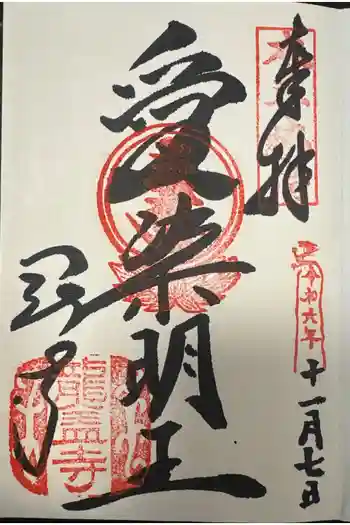 奉拝
令和六年
十一月七日
愛染明王
龍蓋寺